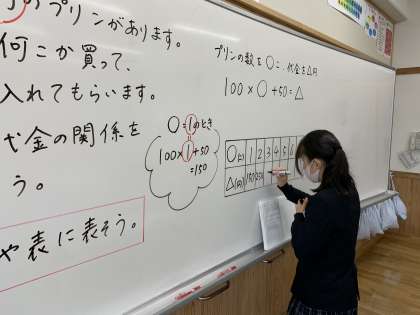 のプリンがあります。
何こか買って、
入れてもらいます。
代金の関係を
う。
や表に表そう。
プリンの数を○こ、代金を△円
100×○+50=△
○=1のとき
100×1+50
=150
○(こ) 1 2 3 4 5 6
△(円) 150 250